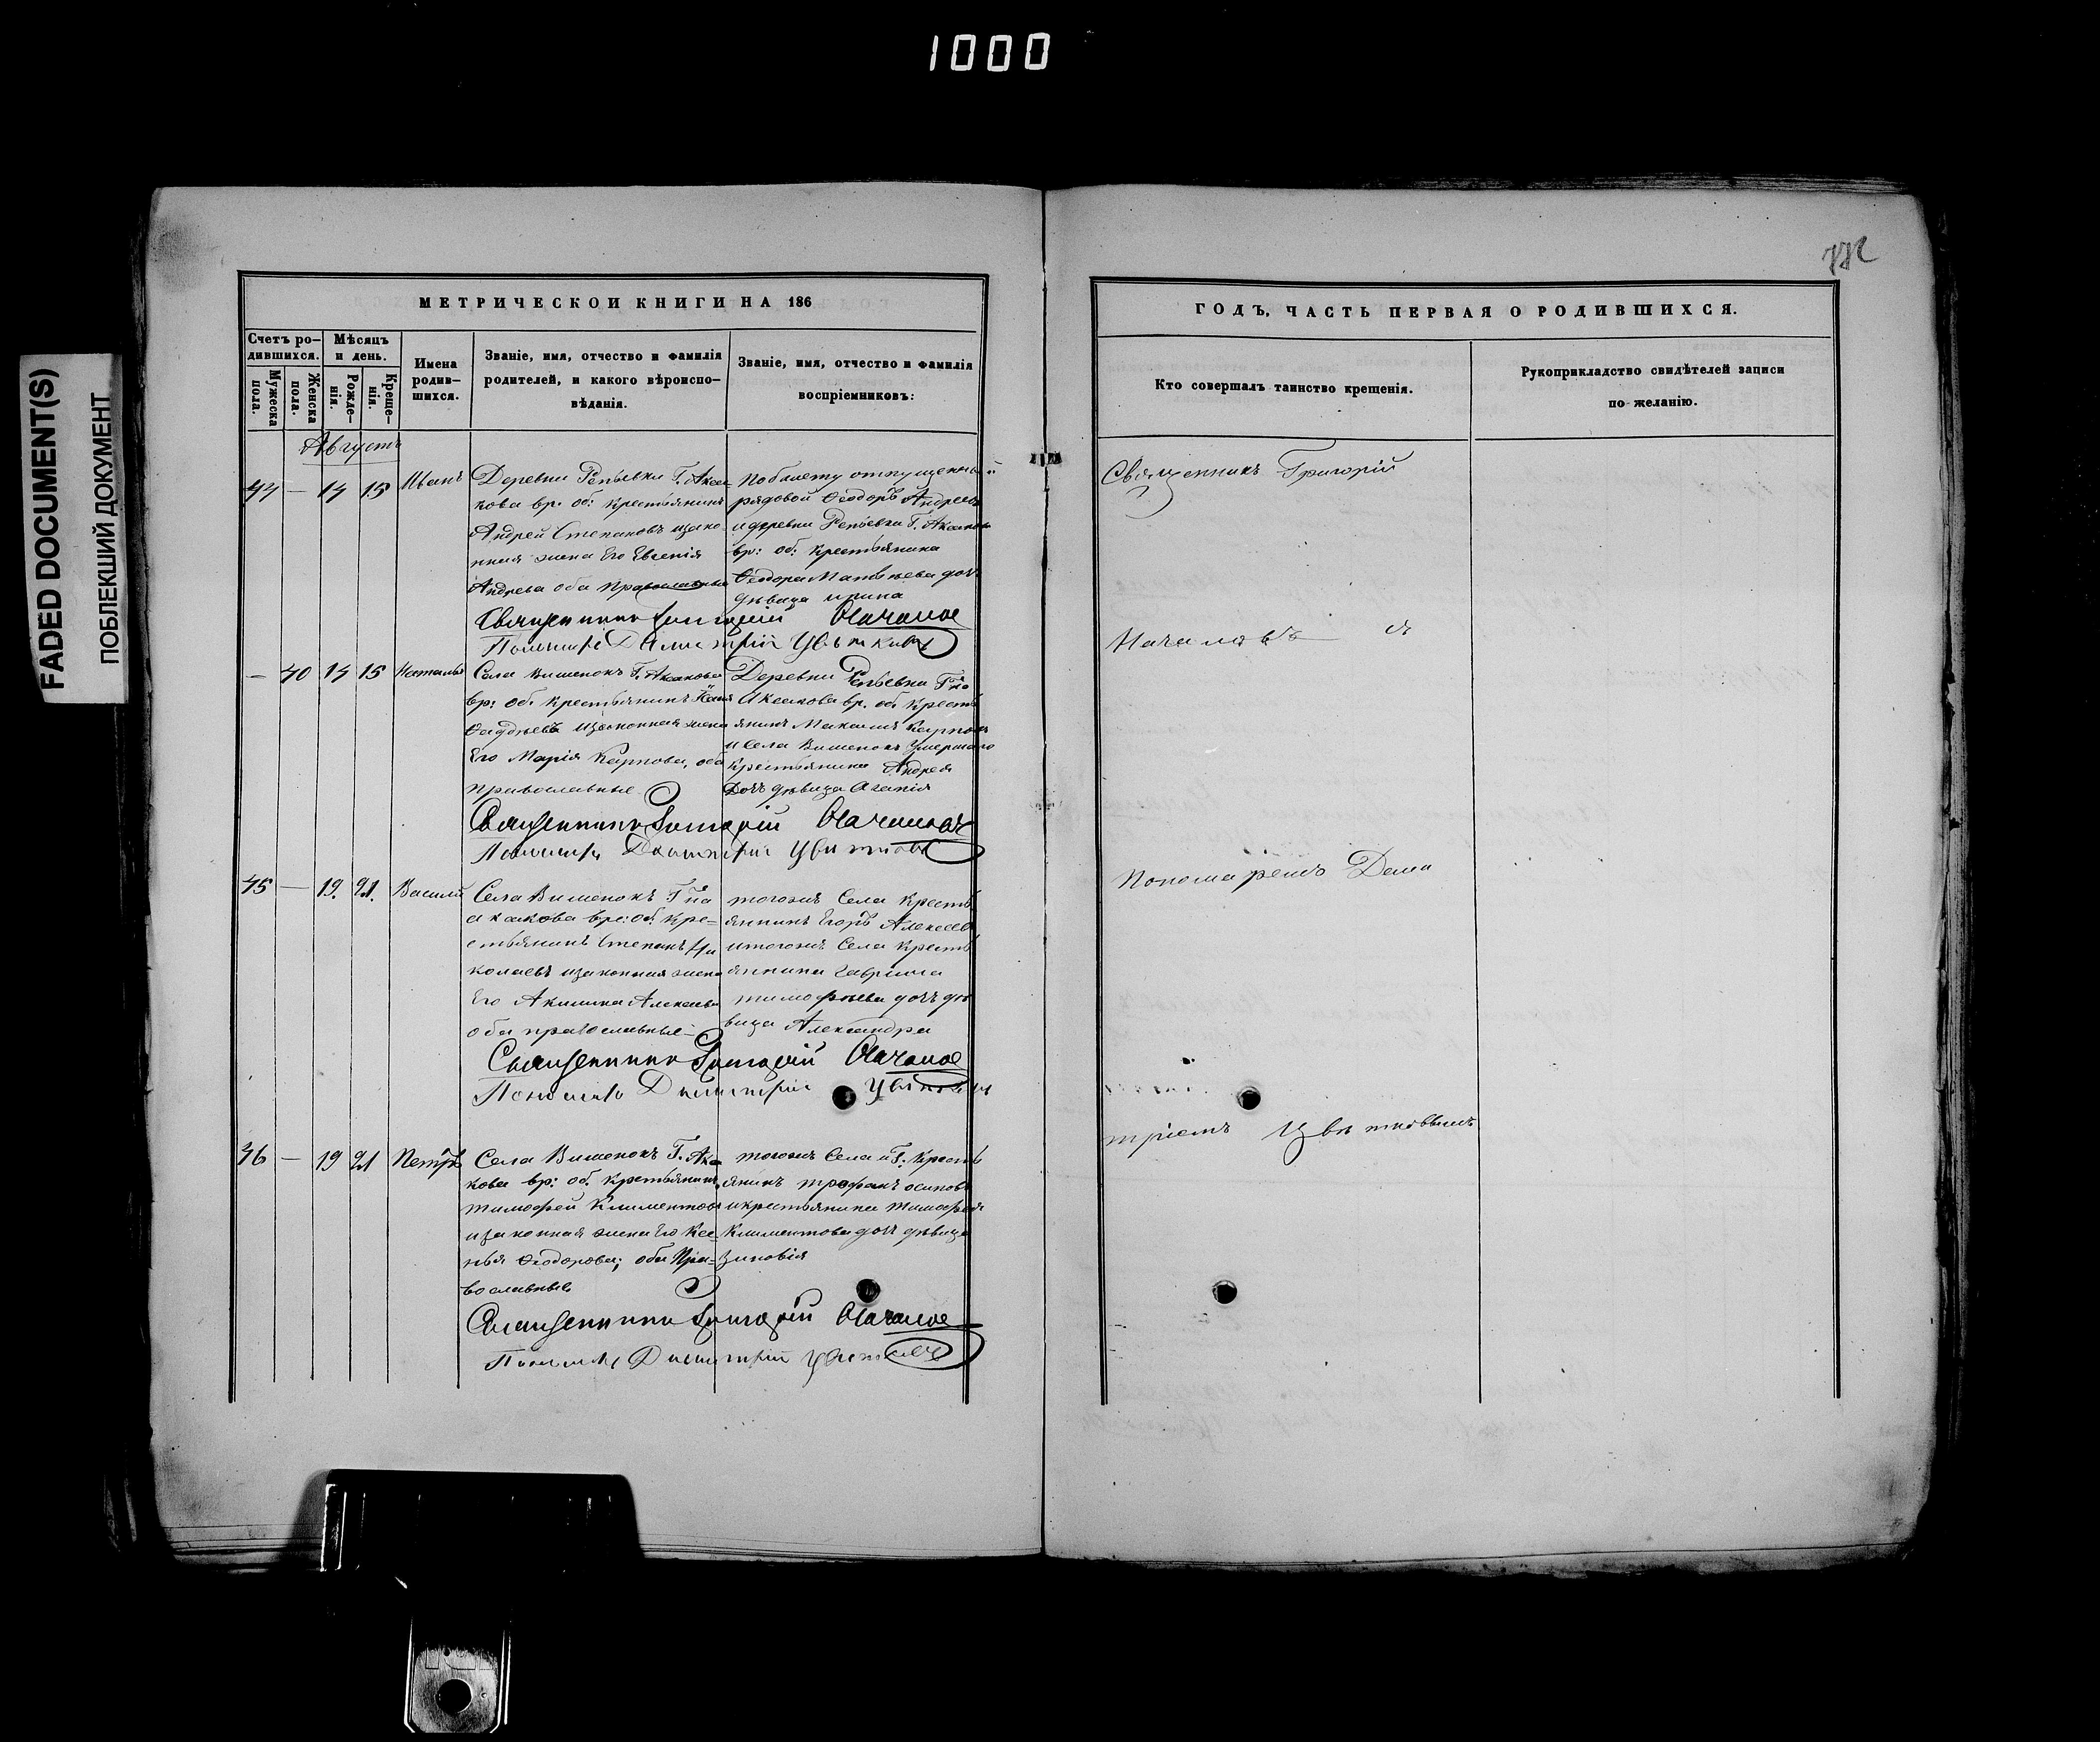 1000
FADED DOCUMENT(S)
ПОБЛЕКШИЙ ДОКУМЕНТ
МЕТРИЧЕСКОЙ КНИГИ НА 186
Счетъ ро-
дившихся.
Мужеска
пола.
Женска
пола.
Мѣсяцъ
и день.
Рожде-
нія.
Креще-
нія.
Имена
родив-
шихся.
Званіе, имя, отчество и фамилія
родителей, и какого вѣроиспо-
вѣданія.
Званіе, имя, отчество и фамилія
воспріемниковъ:
Августъ
44 — 14 15 Иванъ
Деревни Репьевки Г. Акса-
кова вр. об: крестьянинъ
Андрей Степановъ изако-
нная жена Его Евгенія
Андреева оба православные
По билету отпущенный
рядовой Ѳеодоръ Андреевъ
идеревни Репьевки Г. Аксакова
вр: об: крестьянина
Ѳеодора Матвѣева дочь
дѣвица ирина
Священникъ Григорій Началов
Пономарь Димитрій Цвѣтковъ
— 40 14 15 Наталья
Села Вишенокъ Г. Аксакова
вр: об. крестьянинъ
Ѳаддеевъ изаконная жена
Его Марія Карпова, оба
православные
Деревни Репьевки Гна
Аксакова вр. об. крестъ
янинъ Максимъ Карповъ
исела Вишенокъ Умершаго
крестьянина Андрея
дочь дѣвица Агапія
Священникъ Григорій Началовъ
Пономарь Димитрій Цвѣтковъ
45 — 19. 21. Василій
Села Вишенокъ Гна
акакова вре: об. кре-
стьянинъ Степанъ Ни
колаевъ изаконная жена
Его Акилина Алексѣева
оба православные
тогожъ Села крестъ
яннинъ Егоръ Алексѣев
итогожъ Села крестъ
яннина Гаврила
тимофѣева дочь дѣ
вица Александра
Священникъ Григорій Началов
Пономарь Димитрій Цвѣтковъ
46 — 19 21 Петръ
Села Вишенокъ Г. Акса
кова вр: об. крестьянинъ
тимофей Климентовъ
изаконная жена Его Ксе-
нья Ѳеодорова; оба Пра-
вославные
тогожъ Села иГ. Крестъ
янинъ трофимъ осиповъ
икрестьянина тимофея
Климентова дочь дѣвица
зиновія
Священникъ Григорій Началов
Пономарь Димитрій Цвѣтковъ
ГОДЪ, ЧАСТЬ ПЕРВАЯ О РОДИВШИХСЯ.
Кто совершалъ таинство крещенія.
Рукоприкладство свидѣтелей записи
по желанію.
Священникъ Григорій
Началовъ съ
Пономаремъ Дими
тріемъ Цвѣтковымъ